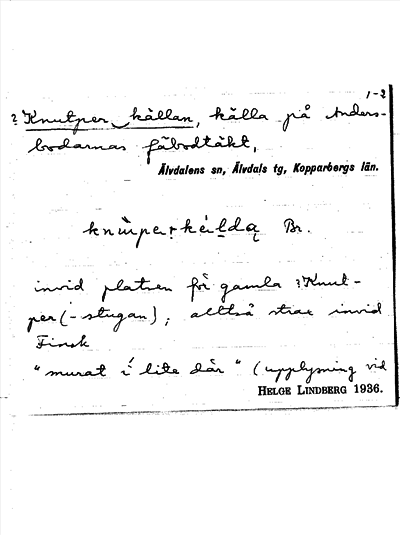 1-2
? Knutper källan, källa på Anders-
bodarnas fäbodtäkt,
Älvdalens sn, Älvdals tg, Kopparbergs län.
Br.
invid platsen för gamla ? Knut-
per (-stugan); alltså strax invid
Finsk
"murat i lite där" (upplysning vid
HELGE LINDBERG 1936.